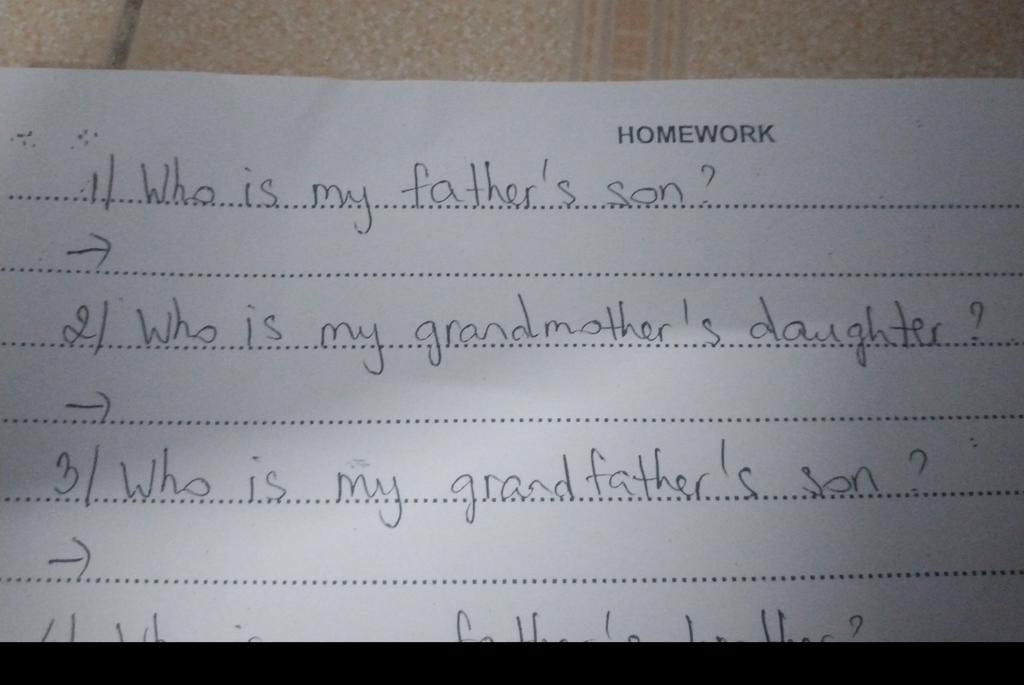 HOMEWORK
1/ Who is my father's son?
→
2/ Who is my grandmother's daughter?
→
3/ Who is my grandfather's son?
→
father's brother?